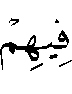 فِيهِمْ